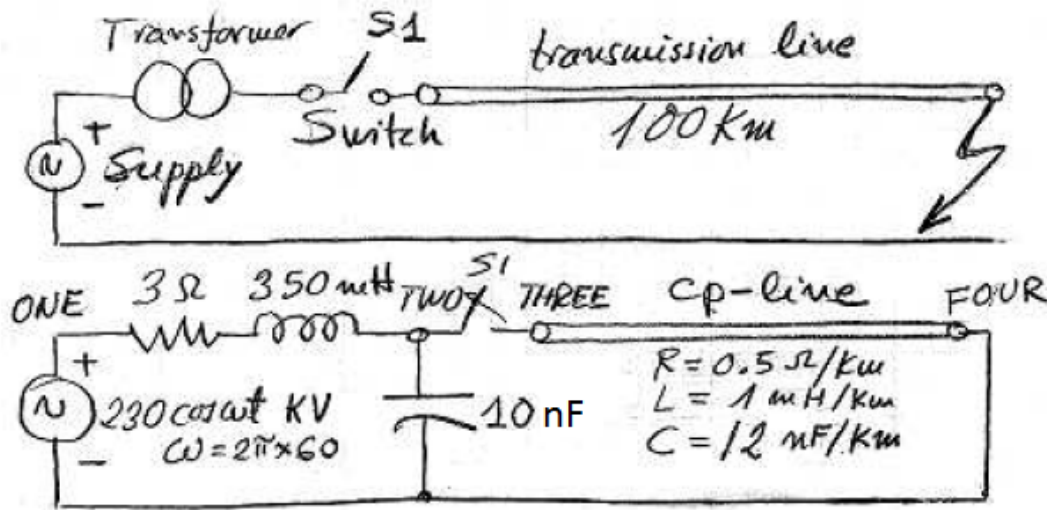 Transformer S1 transmission line
Switch 100 Km
+ Supply
-
ONE 3Ω 350 mH TWO S1 THREE Cp-line FOUR
+
230 cosωt KV
ω = 2π×60
-
10 nF
R = 0.5 Ω/Km
L = 1 mH/Km
C = 12 nF/Km